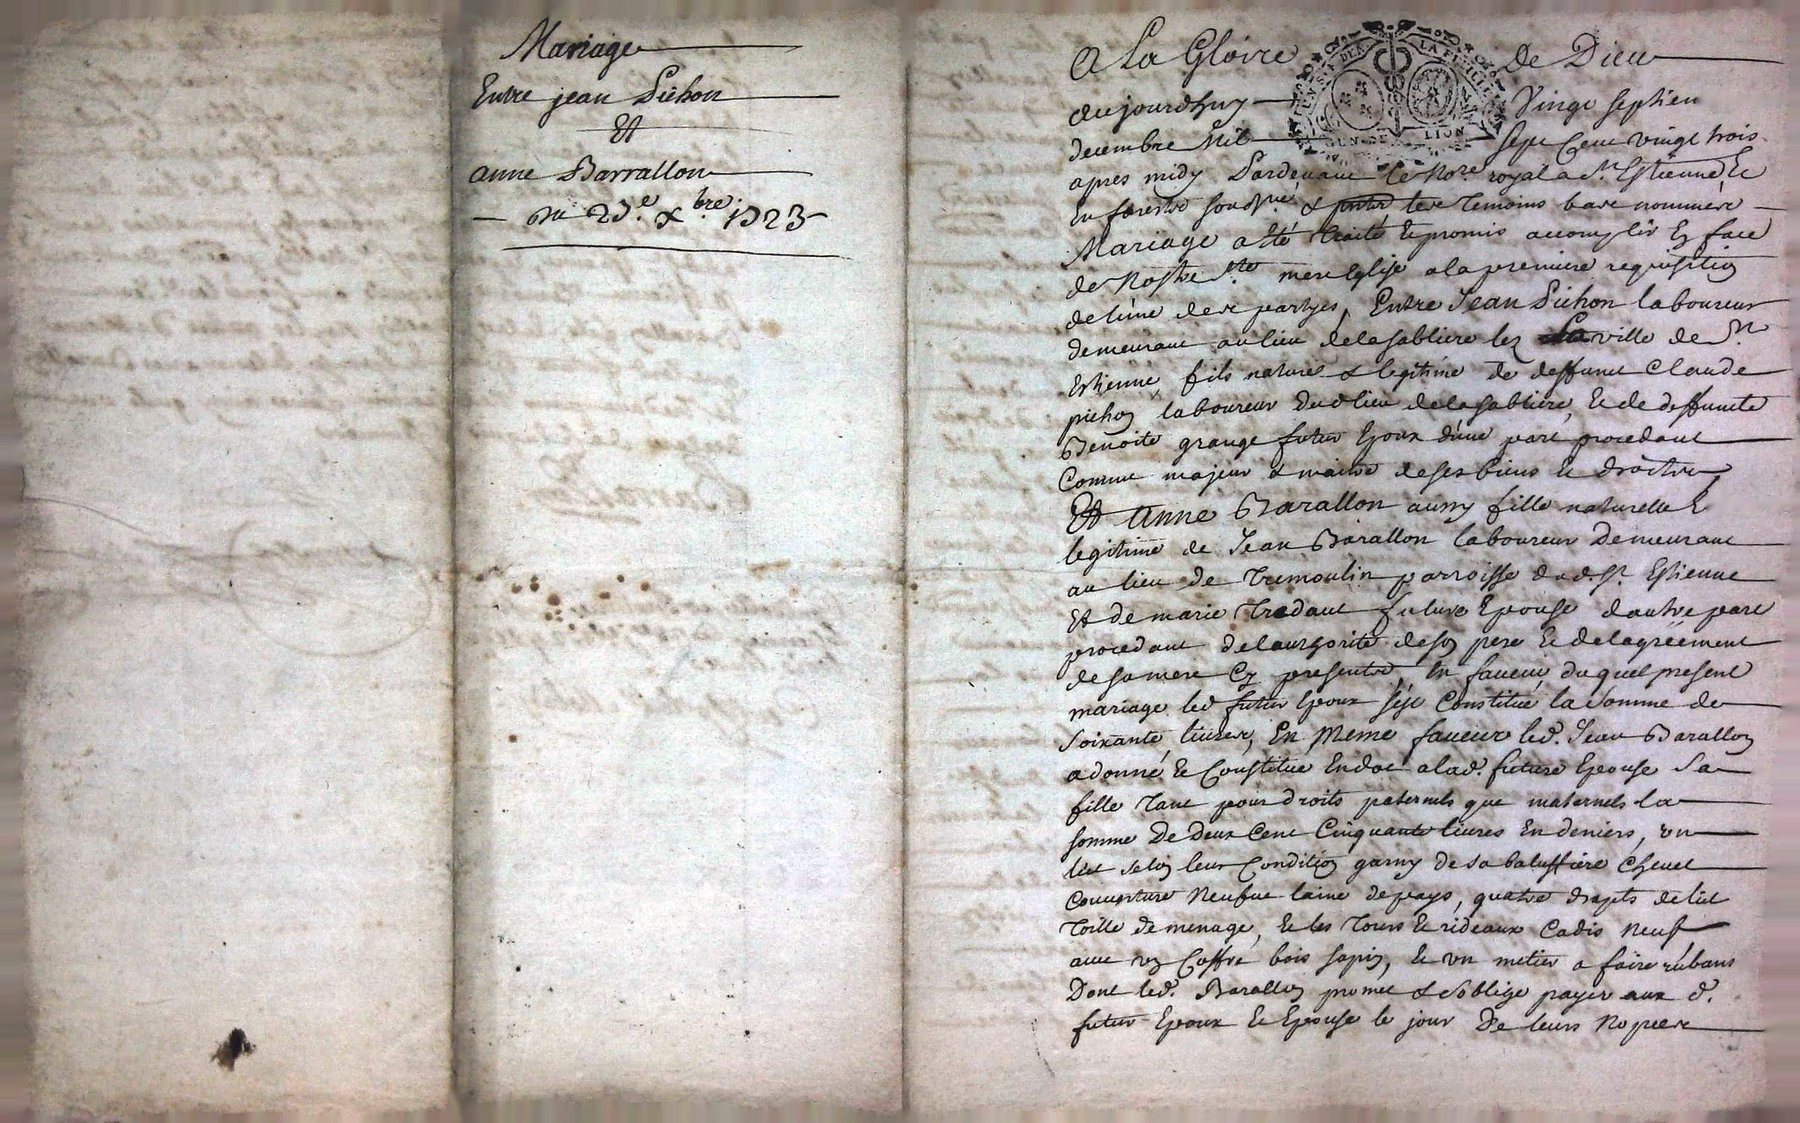 Mariage
Entre jean Pichon
Et
anne Barrallon
Du 27.e xbre. 1723
A La Gloire de Dieu
aujourdhuy Vingt septieme
decembre Mil sept Cent vingt trois
apres midy Pardevant le Nore. royal a St. Estienne
En forestz soubsné & les Temoins bas nommés
Mariage a été traité & promis accomplir En face
de Nostre Ste mere Eglise a la premiere requisition
de l'une des partyes, Entre Jean Pichon laboureur
demeurant au lieu de la sabliere lez la ville de St.
Estienne fils naturel & legitime de deffunct Claude
pichon laboureur dud lieu de la sabliere, & de deffuncte
Benoite grange futur Epoux d'une part procedant
Comme majeur & maitre de ses biens & droits
Et Anne Barallon aussy fille naturelle &
legitime de Jean Barallon laboureur Demeurant
au lieu de Tremoulin parroisse dud. St. Estienne
Et de marie future Epouse d'autre part
procedant de l'authorité de son pere & de l'agréement
de sa mere Cy presents, En faveur duquel present
mariage led futur Epoux s'est Constitué la Somme de
Soixante livres, En Meme faveur led. Jean Barallon
a donné & Constitue En dot a lad. future Epouse Sa
fille Tant pour droits paternels que maternels la
somme De Deux Cent Cinquante livres En deniers, un
lict selon leur Condition garny de sa Chevet
Couverture Neufve laine de pays, quatre drapts de lict
Toille de menage, & les Tours & rideaux Cadis Neuf
avec un Coffre bois sapin, & un metier a faire rubans
Dont led. Barallon promet & s'oblige payer aux d.
futur Epoux & Epouse le jour De leurs Nopces